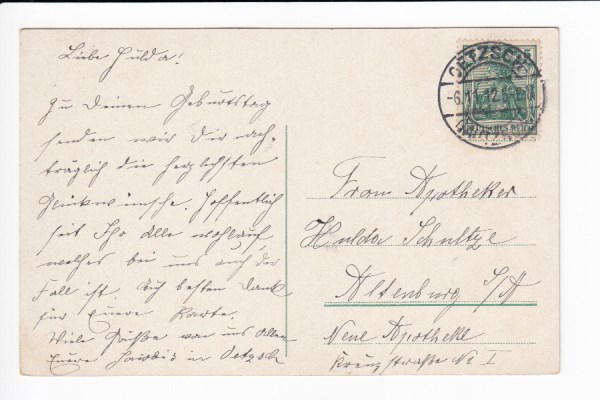 Liebe Hulda!
Zu Deinem Geburtstag
senden wir Dir nach-
träglich die herzlichsten
Glückwünsche. Hoffentlich
seit Ihr Alle wohlauf,
welches bei uns auch der
Fall ist. besten Dank
für Euere Karte.
Viele Grüße von uns Allen
Euere in Oetzsch
OETZSCH
-6.11.12.
DEUTSCHES REICH
Frau Apotheker
Hulda Schultze
Altenburg S/A
Neue Apotheke
Kreuzstraße No I